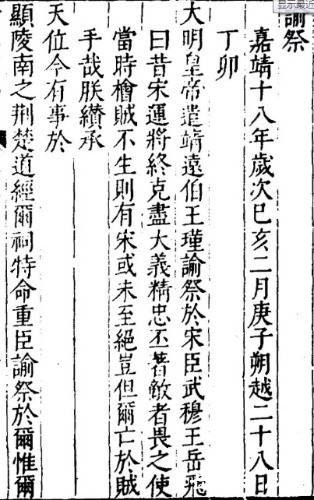 諭祭
嘉靖十八年歲次己亥二月庚子朔越二十八日
丁卯
大明皇帝遣靖遠伯王瑾諭祭於宋臣武穆王岳飛
曰昔宋運將終克盡大義精忠丕著敵者畏之使
當時檜賊不生則有宋或未至絕豈但爾亡於賊
手哉朕纘承
天位今有事於
顯陵南之荆楚道經爾祠特命重臣諭祭於爾惟爾